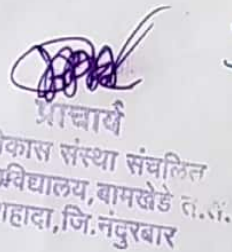 प्राचार्य
विकास संस्था संचलित
विद्यालय, बामखेडे त.त.
शहादा, जि.नंदुरबार